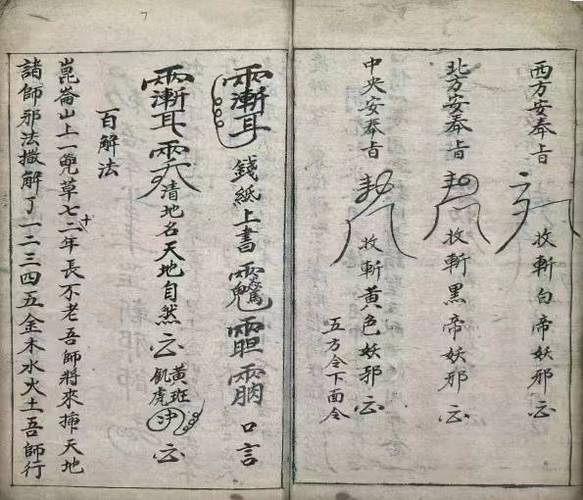 西方安奉旨 收斬白帝妖邪云
北方安奉旨 收斬黑帝妖邪云
中央安奉旨 收斬黃色妖邪云
五方令下面令
錢紙上書 口言
清地名天地自然云 黃班飢虎 云
百解法
崑崙山上一兜草七十二年長不老吾師將來 天地
諸師邪法撒解了一二三四五金木水火土吾師行